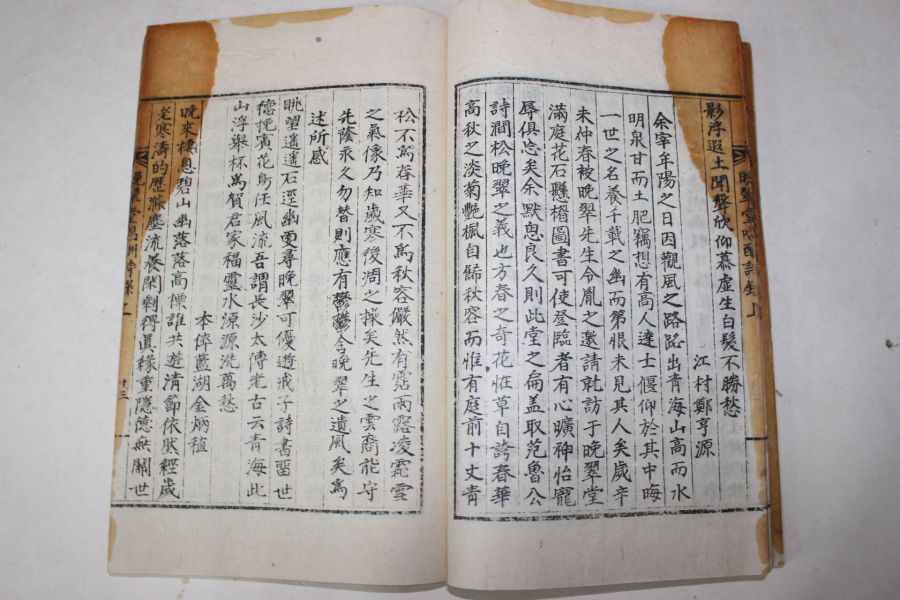 影浮遐土聞聲欣仰慕虛生白髮不勝愁
江村鄭亨源
余宰年陽之日因觀風之路路出青海山高而水
明泉甘而土肥竊想有高人達士偃仰於其中晦
一世之名養千載之幽而第恨未見其人矣歲辛
未仲春被晚翠先生令胤之邀請就訪于晚翠堂
滿庭花石懸楣圖書可使登臨者有心曠神怡寵
辱俱忘矣余默思良久則此堂之扁盖取范魯公
詩澗松晚翠之義也方春之奇花恠草自誇春華
高秋之淡菊艷楓自歸秋容而惟有庭前十丈青
松不爲春華又不爲秋容儼然有霑雨露凌霜雪
之氣像乃知歲寒後凋之操矣先生之雲裔能守
先蔭永久勿替則應有鬱鬱含晚翠之遺風矣爲
述所感
眺望遙遙石逕幽更尋晚翠可優遊戒子詩書留世
德挽賓花鳥任風流吾謂長沙太傅老古云青海此
山浮舉杯爲賀君家福靈水源源洗萬愁
本倅藍湖金炳稙
晚來棲息碧山幽落落高標誰共遊清節依然經歲
老寒濤的歷滌塵流養閑剩得眞緣重隱德無關世
十三